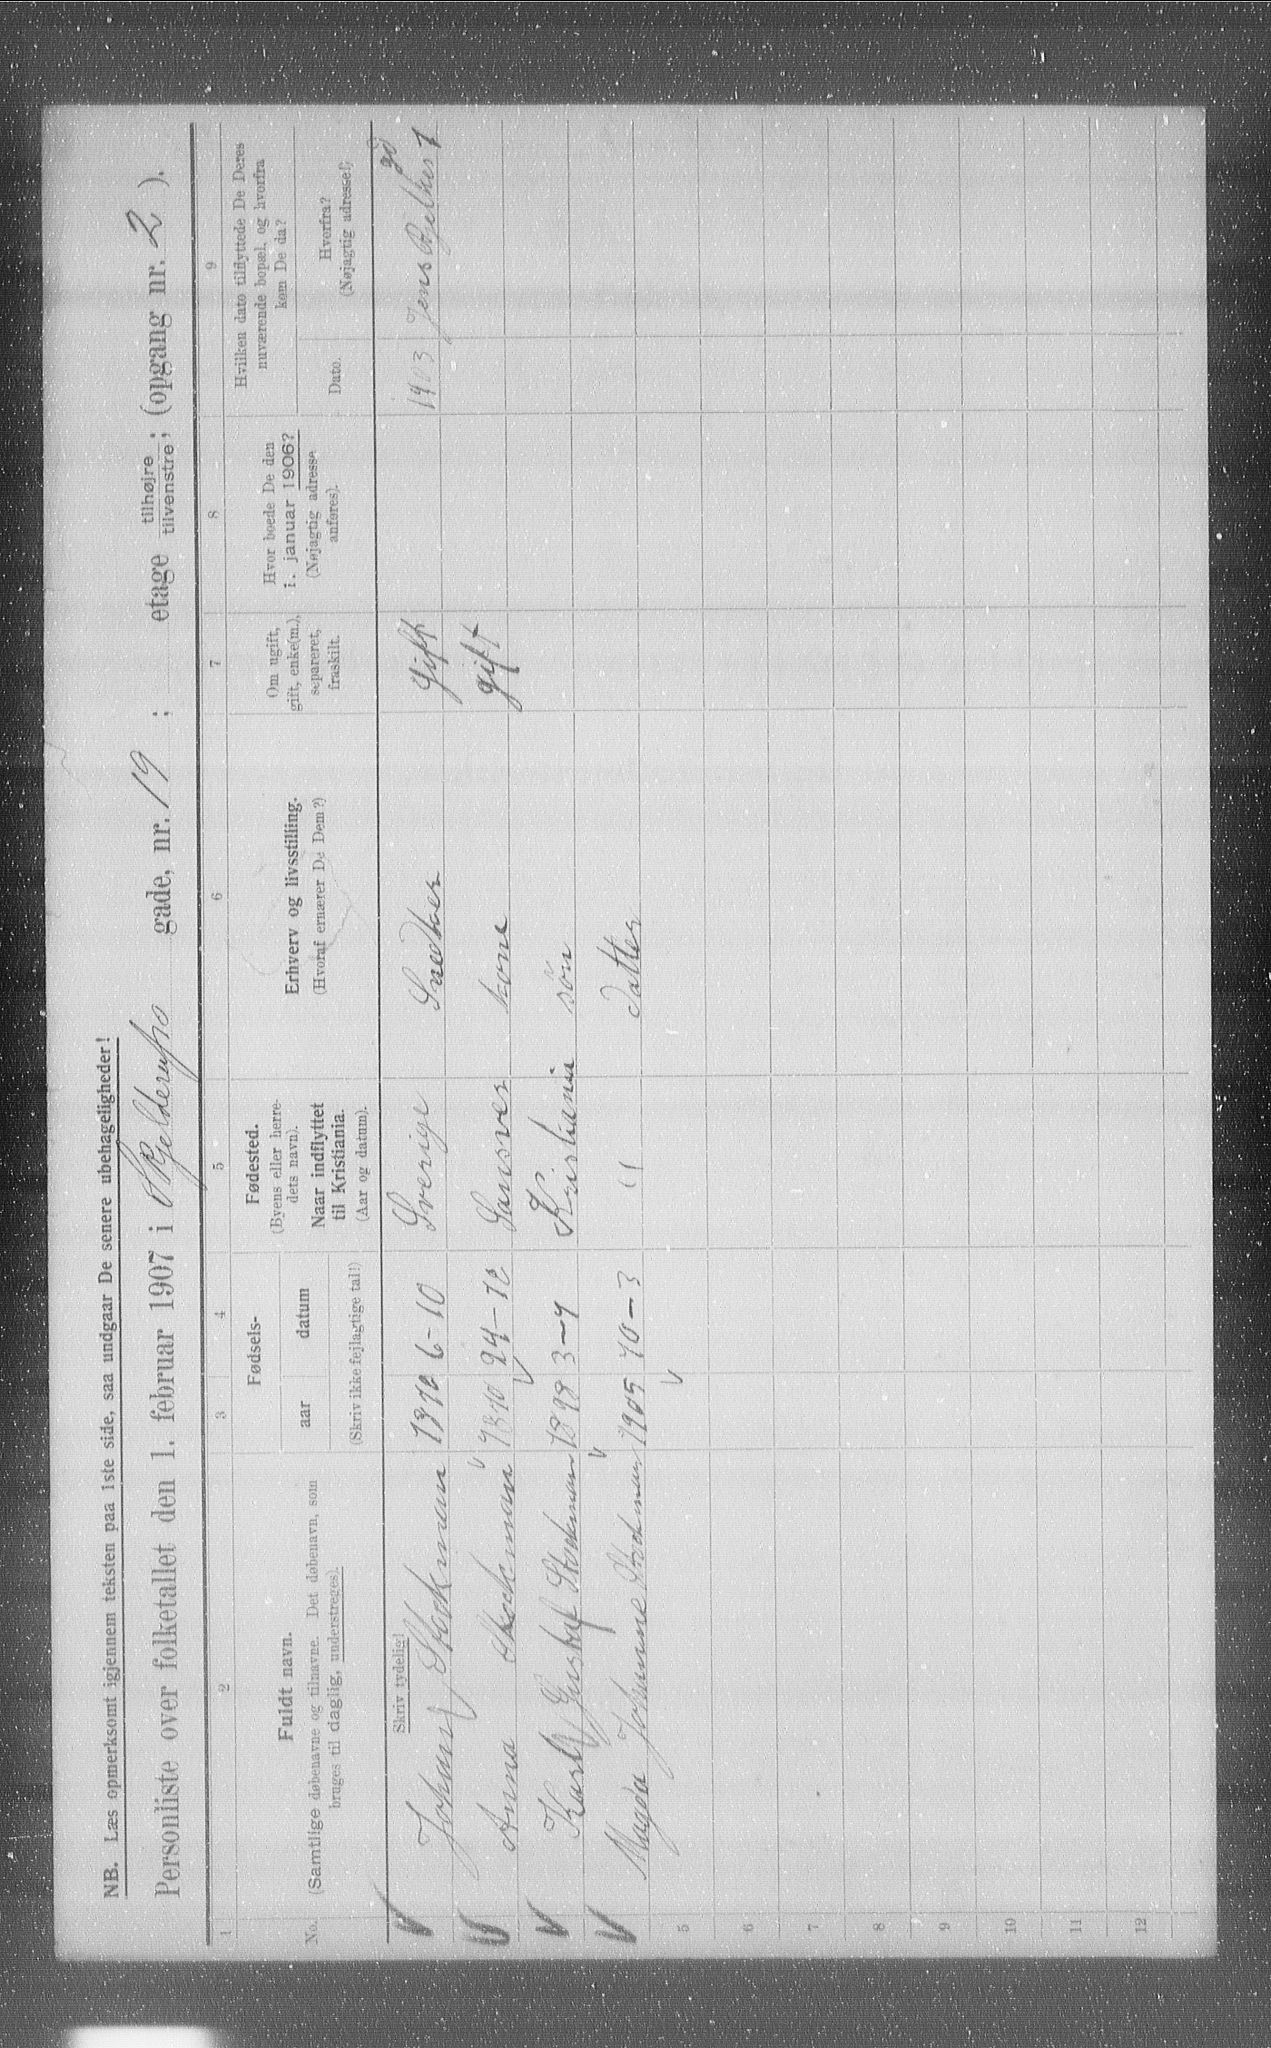 NB. Læs opmerksomt igjennem teksten paa 1ste side, saa undgaar De senere ubehageligheder!
Personliste over folketallet den 1. februar 1907 i Gjelderups gade, nr. 19 ; etage tilhøjre, tilvenstre, (opgang nr. 2 ).
1 2 3 4 5 6 7 8 9
No. Fuldt navn. (Samtlige døbenavne og tilnavne. Det døbenavn, som bruges til daglig, understreges).
Fødsels- aar datum (Skriv ikke fejlagtige tal!)
Fødested. (Byens eller herredets navn). Naar indflyttet til Kristiania. (Aar og datum).
Erhverv og livsstilling. (Hvoraf ernærer De Dem?)
Om ugift, gift, enke(m.), separeret, fraskilt.
Hvor boede De den 1. januar 1906? (Nøjagtig adresse anføres).
Hvilken dato tilflyttede De Deres nuværende bopæl, og hvorfra kom De da?
Dato. Hvorfra? (Nøjagtig adresse!)
Skriv tydelig!
Johan Stokman 1876 6-10 Sverige Snedker gift 1903 Jens Bjelkes gd 1
Anna Stockman 1870 24-10 kone gift
Karl Gustaf Stockman 1898 3-4 Kristiania søn
Magda Johanne Stockman 1905 10-3 " datter
5
6
7
8
9
10
11
12